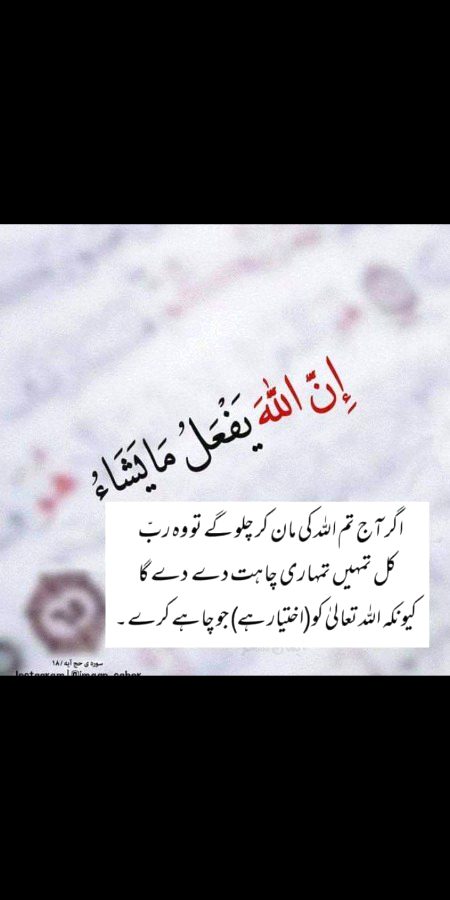 إِنَّ اللّٰهَ يَفْعَلُ مَا يَشَاءُ
اگر آج تم اللہ کی مان کر چلو گے تو وہ ربّ
کل تمہیں تمہاری چاہت دے دے گا
کیونکہ اللہ تعالیٰ کو (اختیار ہے) جو چاہے کرے ۔
سوره ی حج آیه /۱۸
Instagram | @imaan_saber